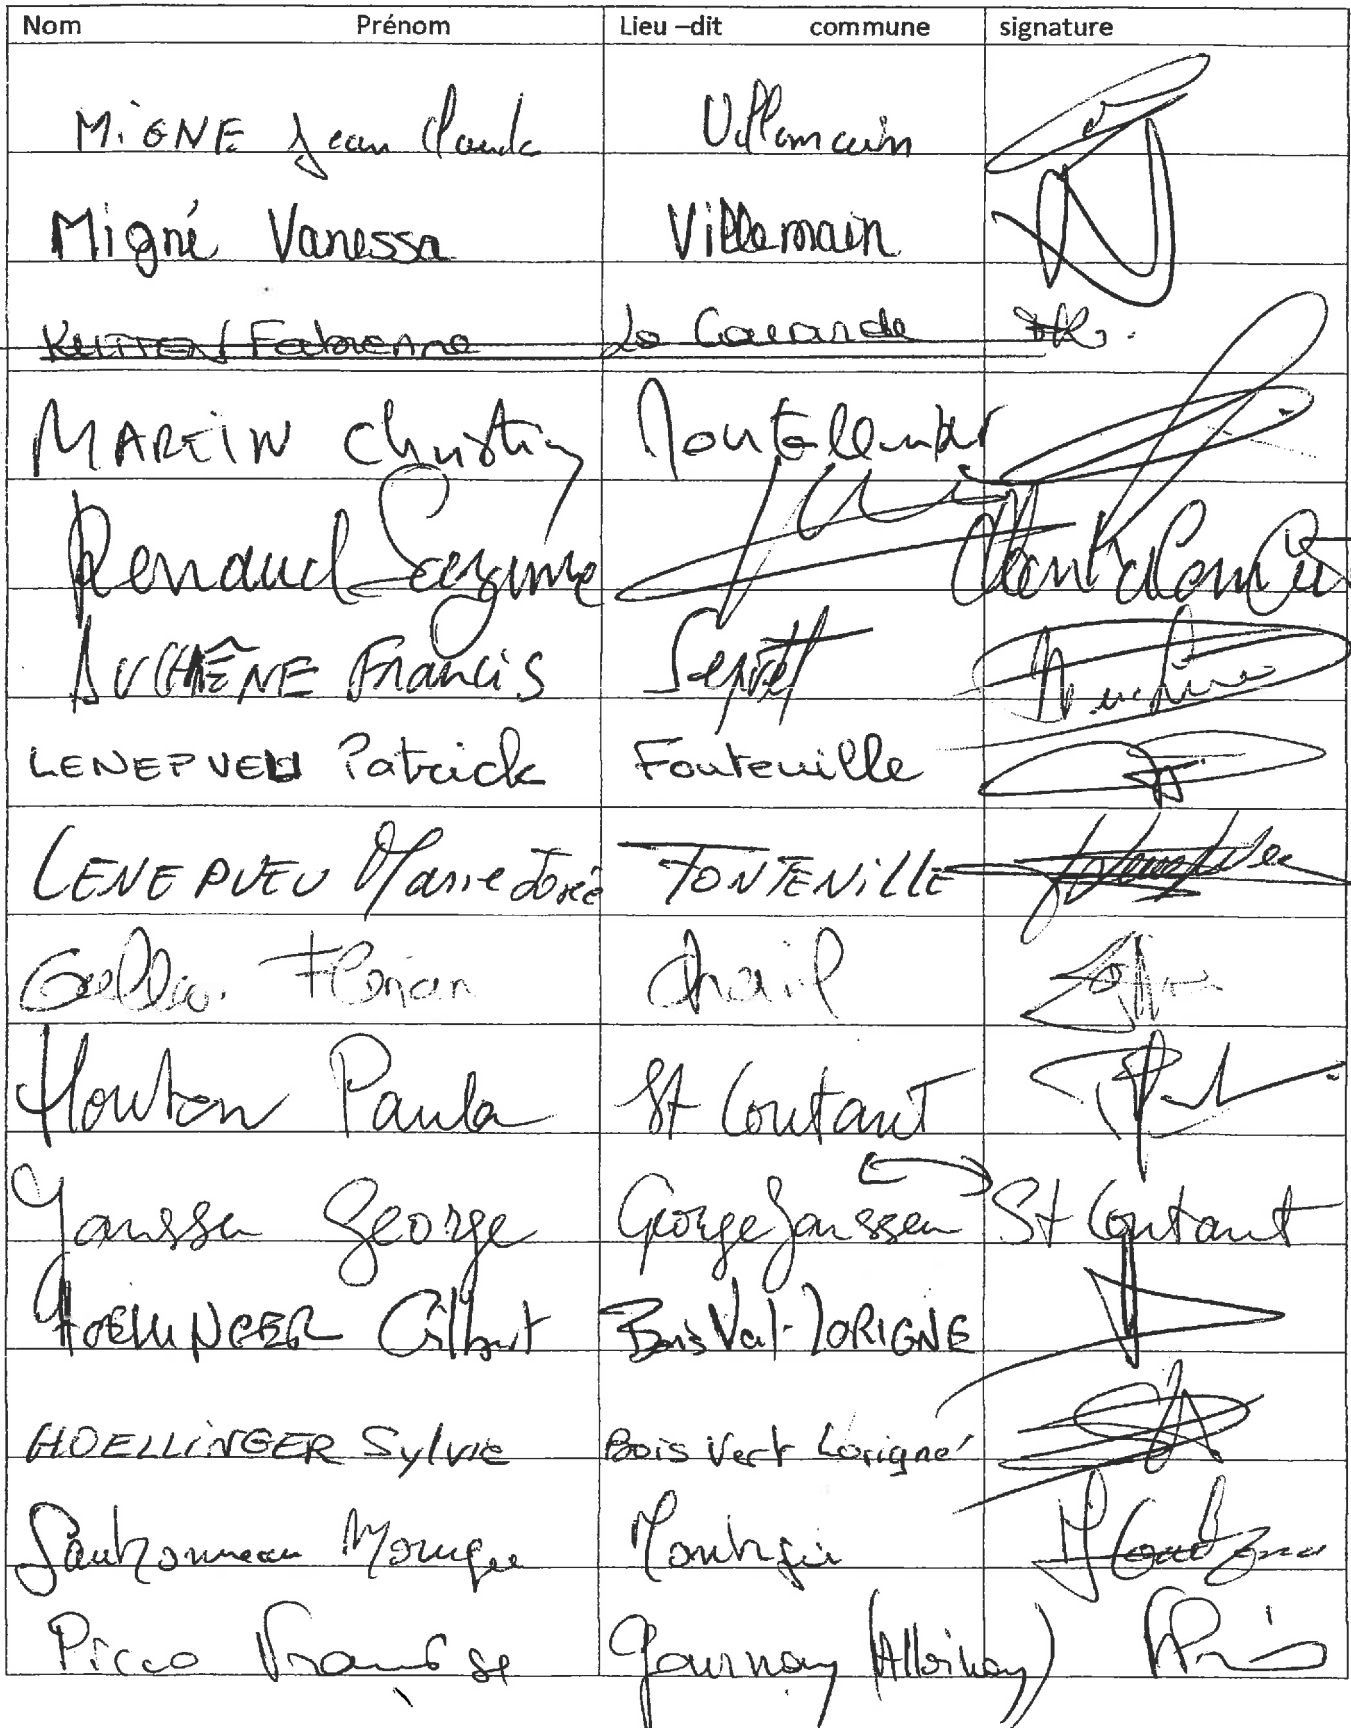 Nom Prénom Lieu –dit commune signature
MIGNE Jean Claude Villemain
Migné Vanessa Villemain
Fabienne La
MARTIN Christian Montalembert
Renaud Montalembert
AUCHÊNE Francis
LENEPVEU Patrick Fontenille
LENEPVEU Marie Josée FONTENILLE
Florian Chail
Houton Paula St Coutant
Janssen George George Janssen St Coutant
HOELLINGER Gilbert Bois Vert LORIGNE
HOELLINGER Sylvie Bois Vert Lorigné
Monique
Picco Françoise Gournay (Alloinay)